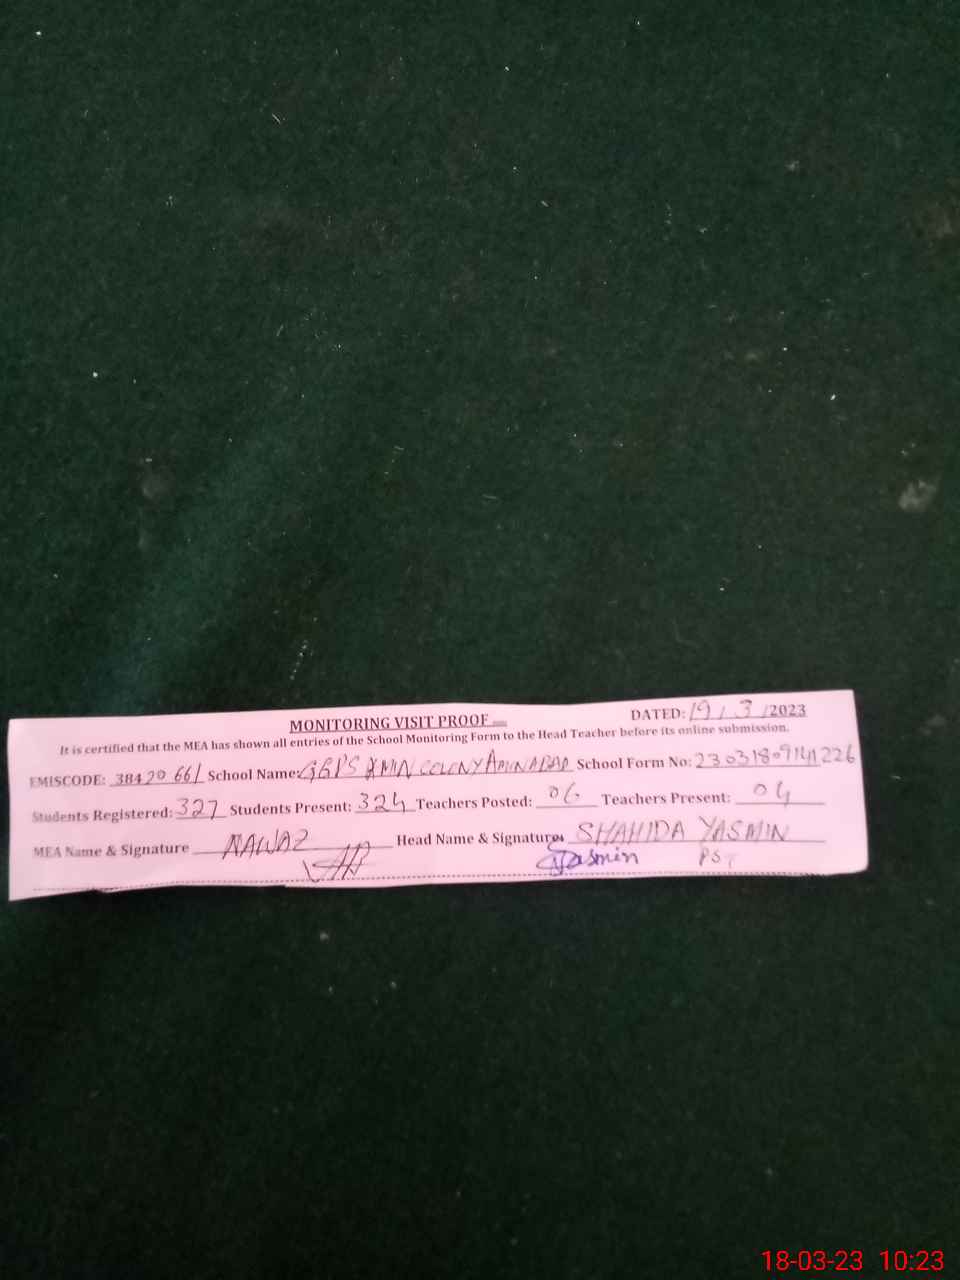 MONITORING VISIT PROOF
DATED: 19 / 3 /2023
It is certified that the MEA has shown all entries of the School Monitoring Form to the Head Teacher before its online submission.
EMISCODE: 38420661 School Name: COLONY AMINABAD School Form No:
Students Registered: 327 Students Present: 324 Teachers Posted: 06 Teachers Present: 04
MEA Name & Signature NAWAZ Head Name & Signature: SHAHIDA YASMIN
Yasmin PST
18-03-23 10:23